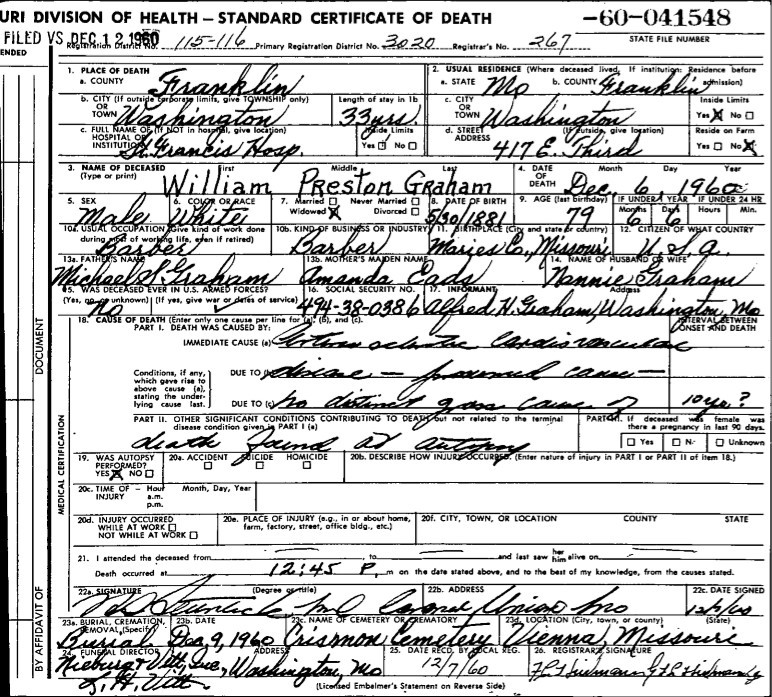 URI DIVISION OF HEALTH — STANDARD CERTIFICATE OF DEATH -60-041548
FILED VS DEC 12 1960 Registration District No. 115-116 Primary Registration District No. 3020 Registrar's No. 267 STATE FILE NUMBER
ENDED
1. PLACE OF DEATH 2. USUAL RESIDENCE (Where deceased lived. If institution: Residence before admission)
a. COUNTY Franklin a. STATE Mo b. COUNTY Franklin
b. CITY (If outside corporate limits, give TOWNSHIP only) OR TOWN Washington Length of stay in 1b 33 yrs. c. CITY OR TOWN Washington Inside Limits Yes X No
c. FULL NAME OF (If NOT in hospital, give location) HOSPITAL OR INSTITUTION St. Francis Hosp. Inside Limits Yes No d. STREET ADDRESS (If outside, give location) 417 E. Third Reside on Farm Yes No X
3. NAME OF DECEASED (Type or print) First Middle Last 4. DATE OF DEATH Month Day Year
William Preston Graham Dec. 6 1960
5. SEX 6. COLOR OR RACE 7. Married Never Married Widowed X Divorced 8. DATE OF BIRTH 9. AGE (last birthday) IF UNDER 1 YEAR IF UNDER 24 HR
Male White 5/30/1881 79 Months 6 Days 6 Hours Min.
10a. USUAL OCCUPATION (Give kind of work done during most of working life, even if retired) 10b. KIND OF BUSINESS OR INDUSTRY 11. BIRTHPLACE (City and state or country) 12. CITIZEN OF WHAT COUNTRY
Barber Barber Maries Co., Missouri U.S.A.
13a. FATHER'S NAME 13b. MOTHER'S MAIDEN NAME 14. NAME OF HUSBAND OR WIFE
Michael S. Graham Amanda Eads Nannie Graham
15. WAS DECEASED EVER IN U.S. ARMED FORCES? 16. SOCIAL SECURITY NO. 17. INFORMANT Address
(Yes, no, or unknown) (If yes, give war or dates of service)
No 494-38-0386 Alfred H. Graham, Washington, Mo
18. CAUSE OF DEATH (Enter only one cause per line for (a), (b), and (c). INTERVAL BETWEEN ONSET AND DEATH
PART I. DEATH WAS CAUSED BY:
IMMEDIATE CAUSE (a) Arteriosclerotic cardiovascular
Conditions, if any, which gave rise to above cause (a), stating the underlying cause last. DUE TO (b) disease — presumed cause —
DUE TO (c) no distinct gross cause of 10 yr.?
PART II. OTHER SIGNIFICANT CONDITIONS CONTRIBUTING TO DEATH but not related to the terminal disease condition given in PART I (a) PART III. If deceased was female was there a pregnancy in last 90 days.
death found at autopsy Yes No Unknown
19. WAS AUTOPSY PERFORMED? YES X NO 20a. ACCIDENT SUICIDE HOMICIDE 20b. DESCRIBE HOW INJURY OCCURRED. (Enter nature of injury in PART I or PART II of item 18.)
20c. TIME OF INJURY Hour a.m. p.m. Month, Day, Year
20d. INJURY OCCURRED WHILE AT WORK NOT WHILE AT WORK 20e. PLACE OF INJURY (e.g., in or about home, farm, factory, street, office bldg., etc.) 20f. CITY, TOWN, OR LOCATION COUNTY STATE
21. I attended the deceased from to and last saw her him alive on
Death occurred at 12:45 P. m on the date stated above, and to the best of my knowledge, from the causes stated.
22a. SIGNATURE (Degree or title) 22b. ADDRESS 22c. DATE SIGNED
MD Coroner Union Mo 12/7/60
23a. BURIAL, CREMATION, REMOVAL (Specify) 23b. DATE 23c. NAME OF CEMETERY OR CREMATORY 23d. LOCATION (City, town, or county) (State)
Burial Dec. 9, 1960 Crismon Cemetery Vienna, Missouri
24. FUNERAL DIRECTOR ADDRESS 25. DATE RECD. BY LOCAL REG. 26. REGISTRAR'S SIGNATURE
Nieburg & Vitt, Inc, Washington, Mo 12/7/60
(Licensed Embalmer's Statement on Reverse Side)
DOCUMENT
MEDICAL CERTIFICATION
BY AFFIDAVIT OF